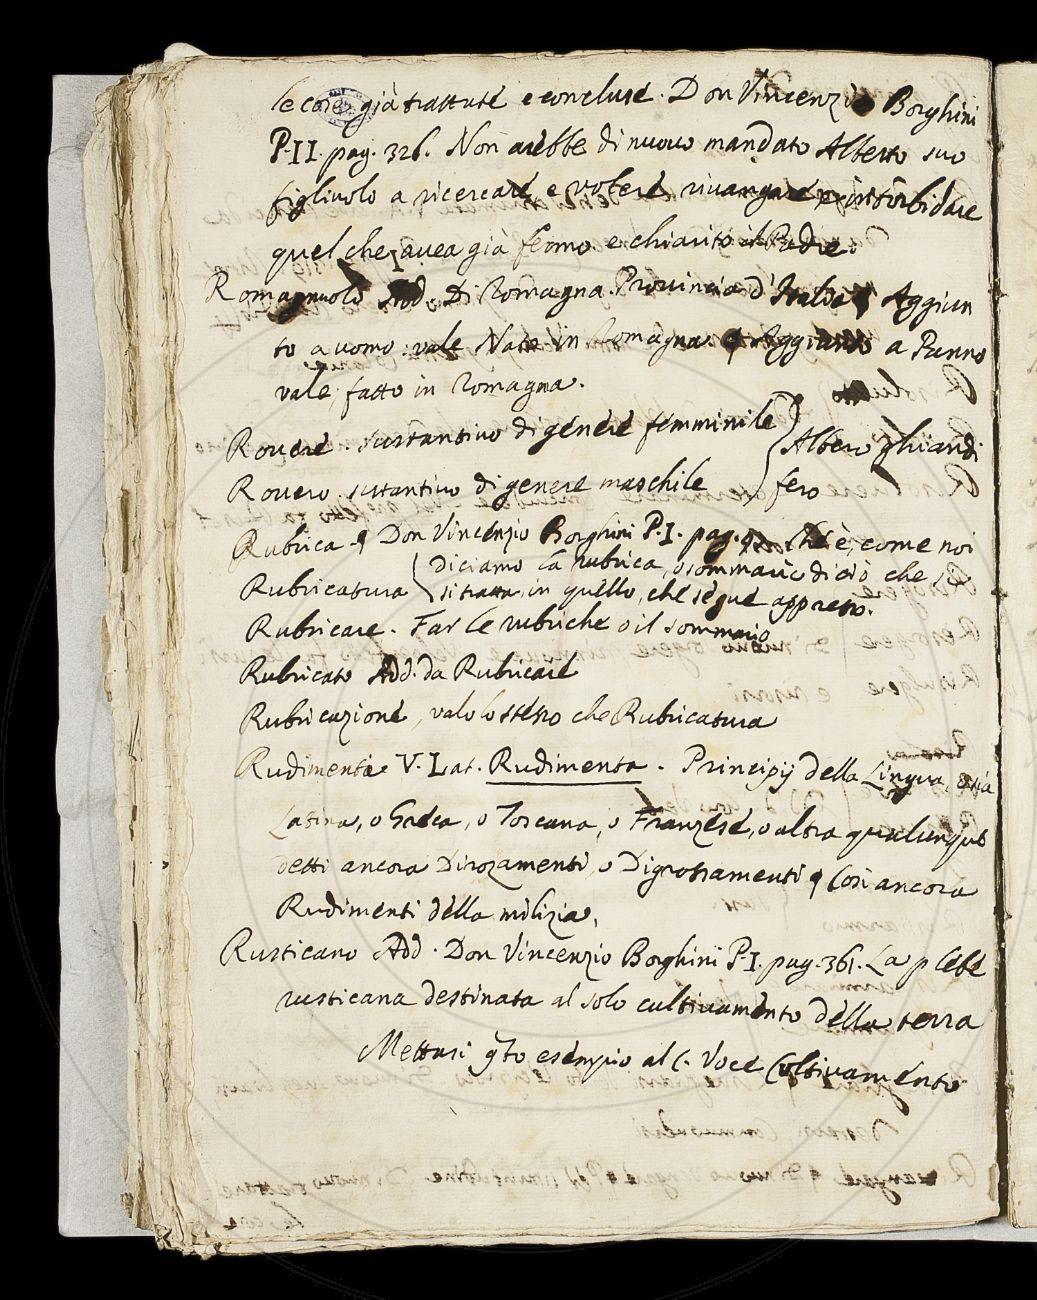 le cose già trattate e concluse. Don Vincenzio Borghini
P. II. pag. 326. Non arebbe di nuovo mandato Alberto suo
figliuolo a ricercare, e volere rivangare, e intorbidare
quel che avea già fermo e chiarito il Padre.
Romagnuolo Add. Di Romagna. Provincia d'Italia ¶ Aggiun
to a uomo: vale Nato in Romagna. ¶ Aggiunto a Panno
vale, fatto in Romagna.
Rovere. sustantivo di genere femminile } Albero ghiandi
Rovero. sustantivo di genere maschile } fero
Rubrica ¶ Don Vincenzio Borghini P. I. pag. Che è, come noi
Rubricatura { diciamo la rubrica, o sommario di ciò che
si tratta in quello, che segue appresso.
Rubricare. Far le rubriche o il sommario
Rubricato Add. da Rubricare
Rubricazione, valo lo stesso che Rubricatura
Rudimenta V. Lat. Rudimenta. Principij della Lingua, o sia
Latina, o Greca, o Toscana, o Franzese, o altra qualunque
detti ancora Dirozamenti, o Digrossamenti ¶ Così ancora
Rudimenti della milizia,
Rusticano Add. Don Vincenzio Borghini P. I. pag. 361. La plebe
rusticana destinata al solo cultivamento della terra
Mettasi qto esempio al C. Voce Coltivamento